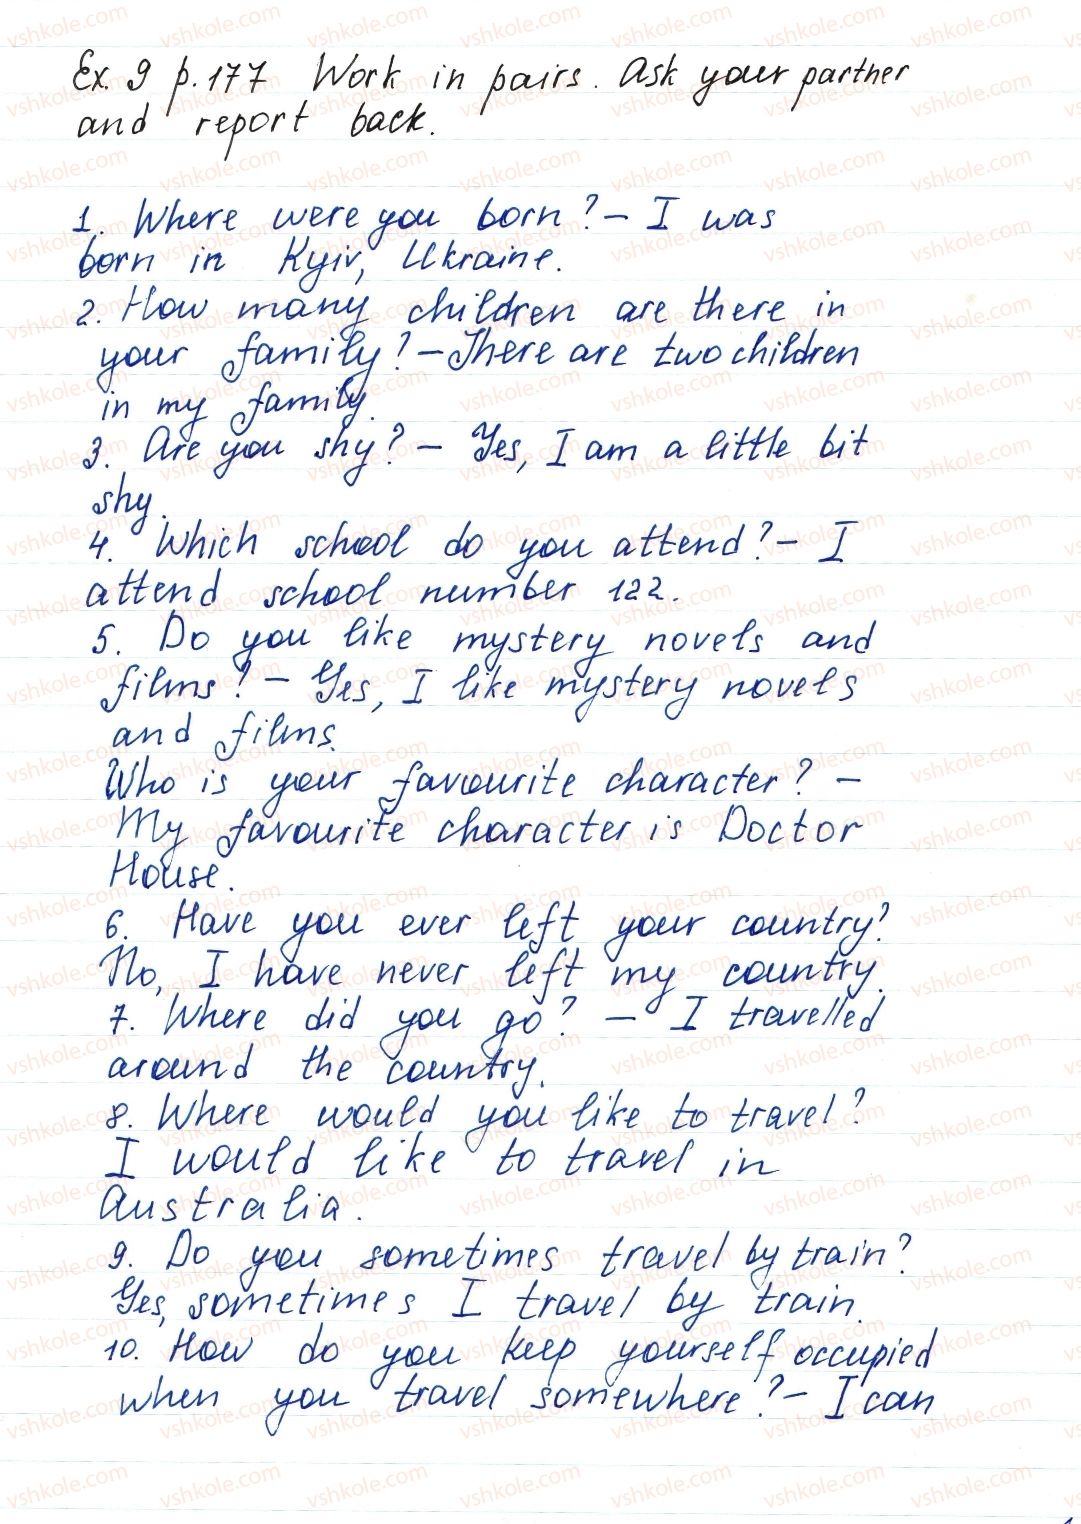 Ex. 9 p. 177 Work in pairs. Ask your partner
and report back.
1. Where were you born? – I was
born in Kyiv, Ukraine.
2. How many children are there in
your family? – There are two children
in my family.
3. Are you shy? – Yes, I am a little bit
shy.
4. Which school do you attend? – I
attend school number 122.
5. Do you like mystery novels and
films? – Yes, I like mystery novels
and films.
Who is your favourite character? –
My favourite character is Doctor
House.
6. Have you ever left your country?
No, I have never left my country.
7. Where did you go? – I travelled
around the country.
8. Where would you like to travel?
I would like to travel in
Australia.
9. Do you sometimes travel by train?
Yes, sometimes I travel by train.
10. How do you keep yourself occupied
when you travel somewhere? – I can